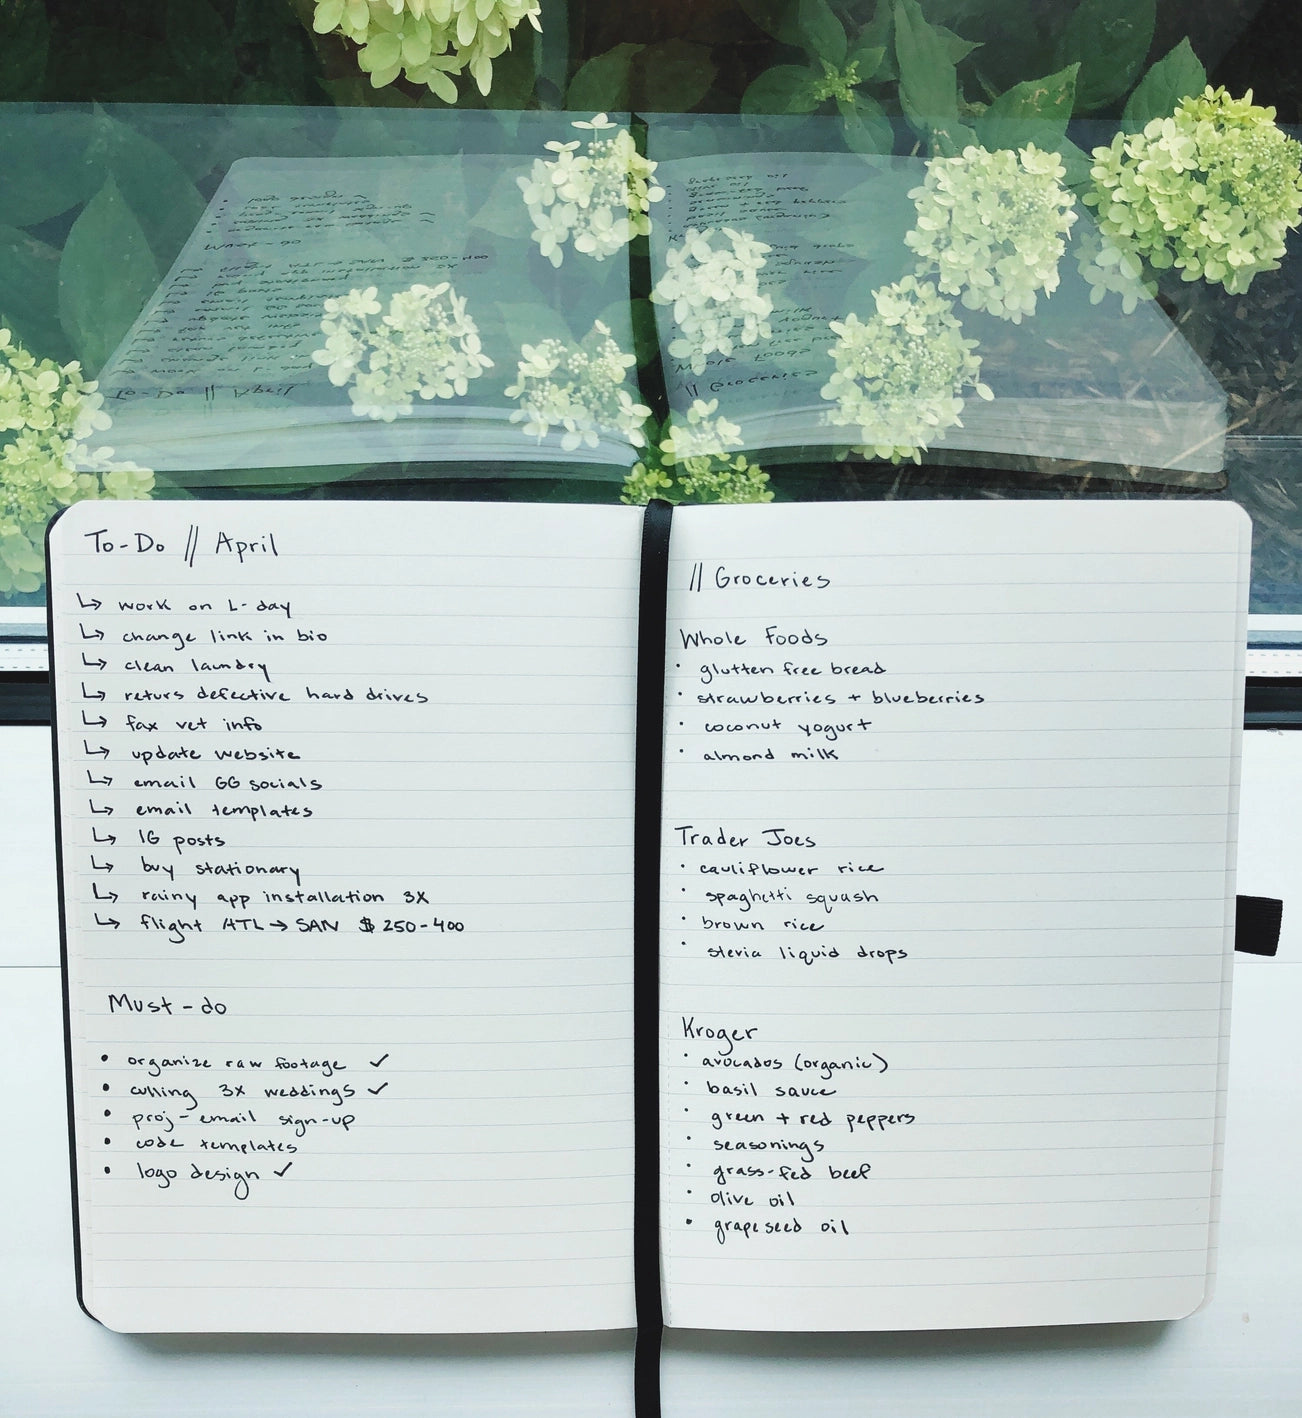 To-Do // April
↳ work on L-day
↳ change link in bio
↳ clean laundry
↳ returs defective hard drives
↳ fax vet info
↳ update website
↳ email GG socials
↳ email templates
↳ IG posts
↳ buy stationary
↳ rainy app installation 3X
↳ flight ATL → SAN $250-400
Must-do
• organize raw footage ✓
• culling 3X weddings ✓
• proj-email sign-up
• code templates
• logo design ✓
// Groceries
Whole Foods
· glutten free bread
· strawberries + blueberries
· coconut yogurt
· almond milk
Trader Joes
· cauliflower rice
· spaghetti squash
· brown rice
· stevia liquid drops
Kroger
· avocados (organic)
· basil sauce
· green + red peppers
· seasonings
· grass-fed beef
· olive oil
• grapeseed oil